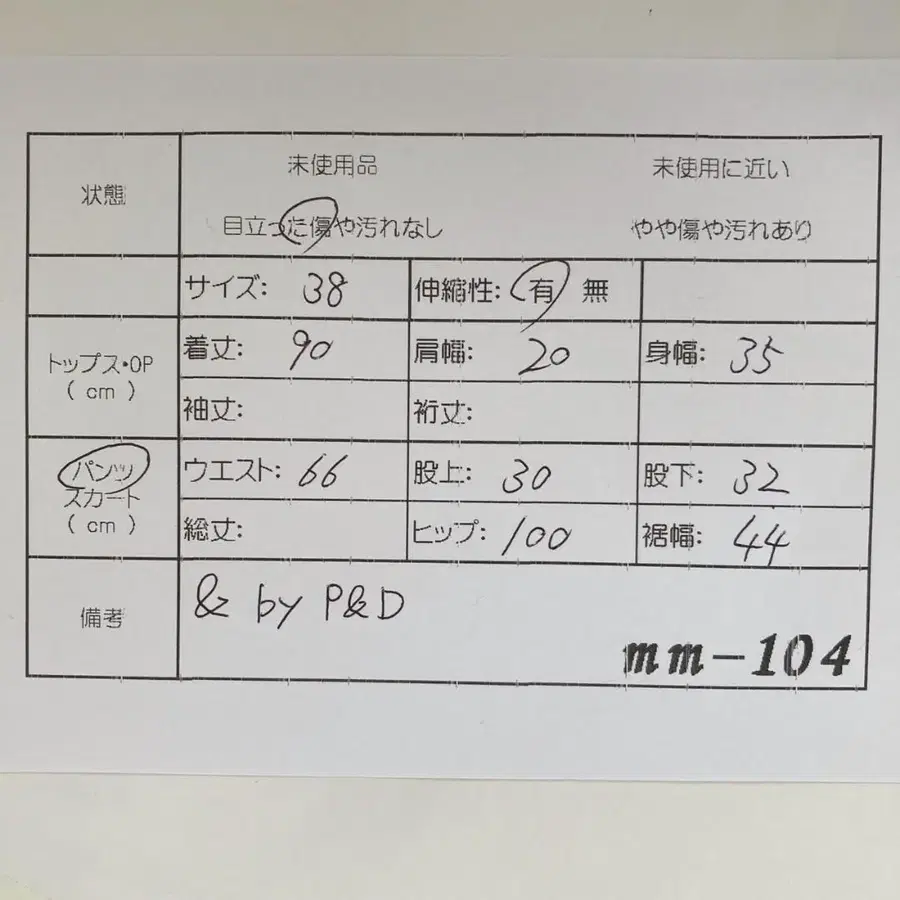 状態
未使用品 未使用に近い
目立った傷や汚れなし やや傷や汚れあり
サイズ: 38 伸縮性: 有 無
トップス・OP
( cm )
着丈: 90 肩幅: 20 身幅: 35
袖丈: 裄丈:
パンツ
スカート
( cm )
ウエスト: 66 股上: 30 股下: 32
総丈: ヒップ: 100 裾幅: 44
備考
& by P&D
mm-104